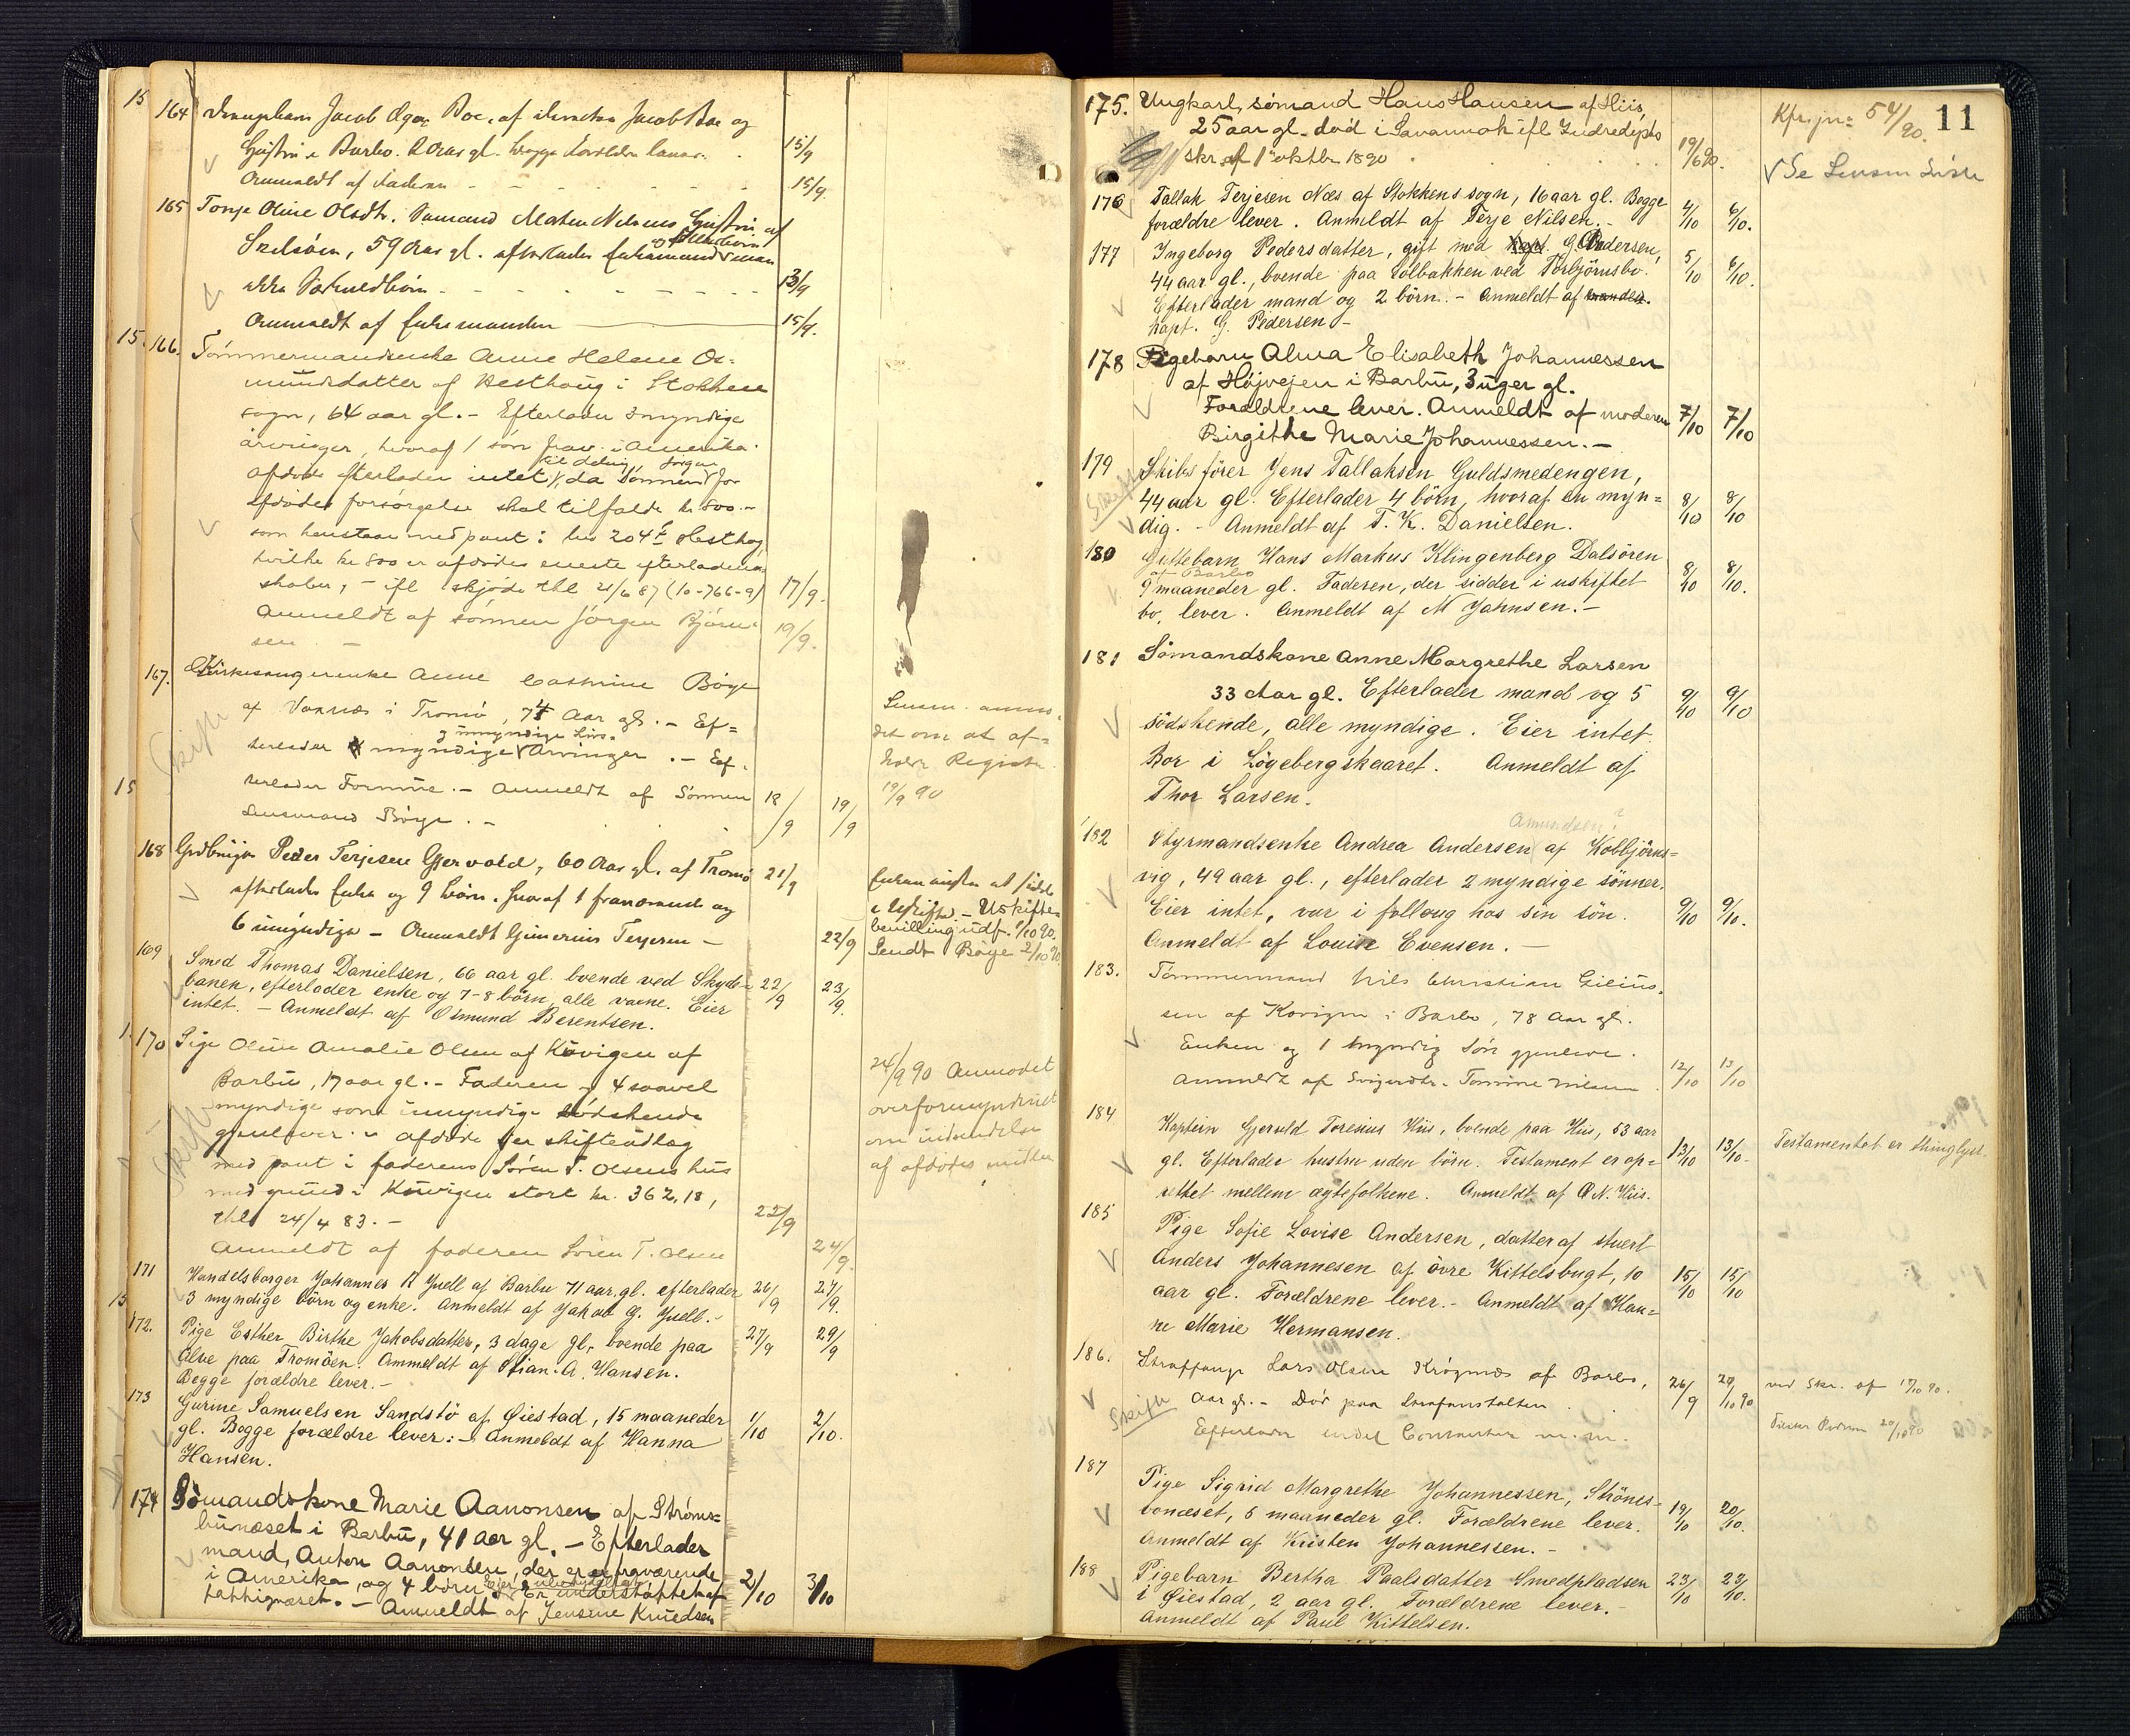 164 Jacob Olga Boe, af Jacob Boe og
i Barbo. 2 Aar gl. begge
Anmeldt af Faderen 15/9 15/9
165 Tonje Oline Olsdtr. Sømand Mathn Nielsens Hustru af
59 Aar gl. efterlader
13/9
Anmeldt af Enkemanden 15/9.
166. Tömmermandsenke Anne Helene Os-
mundsdatter af Hesthaug i Stokken
sogn, 64 aar gl. - Efterlader myndige
arvinger, hvoraf 1 søn frav. i Amerika.
afdøde efterlader intet til deling, da sønnen Jørgen for
afdødes forsørgelse skal tilfalde kr 800.-
som henstaar med pant i
hvilke kr 800 er afdødes eneste efterladen-
skaber, - ifl skjøde thl 21/6 87 (10-766-9) 17/9.
Anmeldt af sönnen Jörgen Björn-
sen. - 19/9.
167. Kirkesangerenke Anne Cathrine Böye
af Vaxnæs i Tromö, 74 Aar gl. - Ef-
terlader myndige Arvinger. - Ef-
og umyndige Livs-
Skifte
terlader Formue. - Anmeldt af Sönnen 18/9 19/9
Lensmand Böye. -
det om at af-
holde Registr.
19/9 90
168 Gdbruger Peder Terjesen Gjervold, 60 Aar gl. af Tromö 21/9
efterlader Enke og 9 börn, hvoraf 1 fraværende og
6 umyndige - Anmeldt Terjesen - 22/9
Enken at sidde
i Uskifte. - Uskifte-
bevilling udf. 1/10 90.
Sendt Böye 2/10 90.
169 Smed Thomas Danielsen, 66 aar gl. boende ved Skyde- 22/9 23/9.
banen, efterlader enke og 7-8 börn, alle voxne. Eier
intet. - Anmeldt af Osmund Berentsen.
170 Pige Oline Amalie Olsen af Kövigen af
Barbu, 17 aar gl. - Faderen og 4 saavel
myndige som umyndige södskende
gjenlever. - afdöde eier skifteudlæg
Skifte
med pant i faderens Sören T. Olsens hus
med grund i Kövigen stort kr. 362,18,
thl 24/4 83. - 22/9
Anmeldt af faderen Sören T. Olsen 24/9.
24/9 90 Anmodet
overformynderiet
om indsendelse
af afdødes midler
171 Handelsborger Johannes R Juell af Barbu 71 aar gl. efterlader 26/9 27/9.
3 myndige börn og enke. Anmeldt af Jakob G. Juell. -
172. Pige Esther Birthe Jakobsdatter, 3 dage gl, boende paa 27/9 29/9
Alve paa Tromöen. Anmeldt af Stian. A. Hansen.
Begge forældre lever. -
173 Gurine Samuelsen Sandstö af Øiestad, 15 maaneder 1/10 2/10.
gl. Begge forældre lever. - Anmeldt af Hanna
Hansen.
174 Sömandskone Marie Aanonsen af Ströms-
bunæset i Barbu, 41 aar gl. - Efterlader
mand, Anton Aanonsen, der er fraværende
i Amerika, og 4 börn. Er understöttet af 2/10 3/10
fattigvæset. - Anmeldt af Jensine Knudsen
11
175. Ungkarl, sömand Hans Hansen af Hiis,
25 aar gl. död i Savannah ifl Indredepts
skr. af 1 oktbr 1890 19/6 90.
Kfr. jr: 54/90.
Se Lensm Liste
176 Tallak Terjesen Næs af Stokkens sogn, 16 aar gl. Begge
forældre lever. Anmeldt af Terje Nilsen. - 4/10 6/10.
177 Ingeborg Pedersdatter, gift med kapt. G. Pedersen,
44 aar gl., boende paa Solbakken ved Torbjörnsbo. 5/10 6/10.
Efterlader mand og 2 börn. - Anmeldt af manden.
kapt. G. Pedersen -
178 Pigebarn Alma Elisabeth Johannessen
af Höjvejen i Barbu, 3 uger gl.
Forældrene lever. Anmeldt af moderen 7/10 7/10
Birgithe Marie Johannessen. -
179 Skibsförer Jens Tallaksen Guldsmedengen,
Skifte
44 aar gl. Efterlader 4 börn, hvoraf en myn- 8/10 8/10
dig. - Anmeldt af T. K. Danielsen.
180 Guttebarn Hans Markus Klingenberg Dalsören
af Barbo
9 maaneder gl. Faderen, der sidder i uskiftet 8/10 8/10.
bo, lever. Anmeldt af M Jahnsen. -
181 Sömandskone Anne Margrethe Larsen
33 Aar gl. Efterlader mand og 5 9/10 9/10
södskende, alle myndige. Eier intet.
Bor i Lögebergskaaret. Anmeldt af
Thor Larsen.
Amundsen?
182 Styrmandsenke Andrea Andersen af Kolbjörns-
vig, 49 aar gl., efterlader 2 myndige sönner.
Eier intet, var i follaug hos sin sön. 9/10 9/10.
Anmeldt af Louise Evensen. -
183. Tömmermand Nils Christian Gilius-
sen af Kovigen i Barbo, 78 Aar gl.
Enken og 1 myndig Sön gjenlever.
Anmeldt af Svigerdtr. Tomine Nilsen. 12/10 13/10
184 Kaptein Gjeruld Toresius Hiis, boende paa Hiis, 53 aar
gl. Efterlader hustru uden börn. Testament er op- 13/10 13/10. Testamentet er thinglyst.
rettet mellem ægtefolkene. Anmeldt af A N. Hiis.
185 Pige Sofie Lovise Andersen, datter af stuert
Anders Johannesen af övre Kittelsbugt, 10 15/10 15/10
aar gl. Forældrene lever. - Anmeldt af Han-
ne Marie Hermansen.
186. Straffange Lars Olsen Krögenæs af Barbo, 26/9 20/10 90 ved Skr. af 17/10 90.
Skifte Aar gl. - Död paa Strafanstalten.
Efterlader endel Contanter m. m. 20/10 90
187 Pige Sigrid Margrethe Johannessen, Ströms-
bonæset, 5 maaneder gl. Forældrene lever. 19/10 20/10.
Anmeldt af Kristen Johannessen. -
188 Pigebarn Bertha Paalsdatter Smedpladsen 23/10 23/10.
i Øiestad, 2 aar gl. Forældrene lever. -
Anmeldt af Paul Kittelsen.